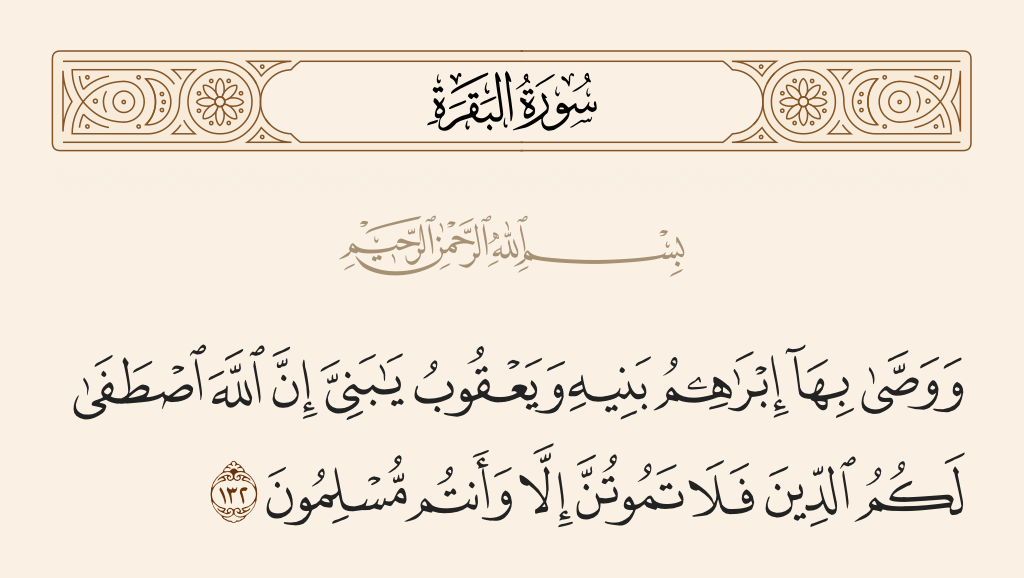 سُورَةُ البَقَرَةِ
بِسْمِ ٱللَّهِ ٱلرَّحْمَٰنِ ٱلرَّحِيمِ
وَوَصَّىٰ بِهَآ إِبْرَٰهِـۧمُ بَنِيهِ وَيَعْقُوبُ يَـٰبَنِىَّ إِنَّ ٱللَّهَ ٱصْطَفَىٰ
لَكُمُ ٱلدِّينَ فَلَا تَمُوتُنَّ إِلَّا وَأَنتُم مُّسْلِمُونَ ١٣٢